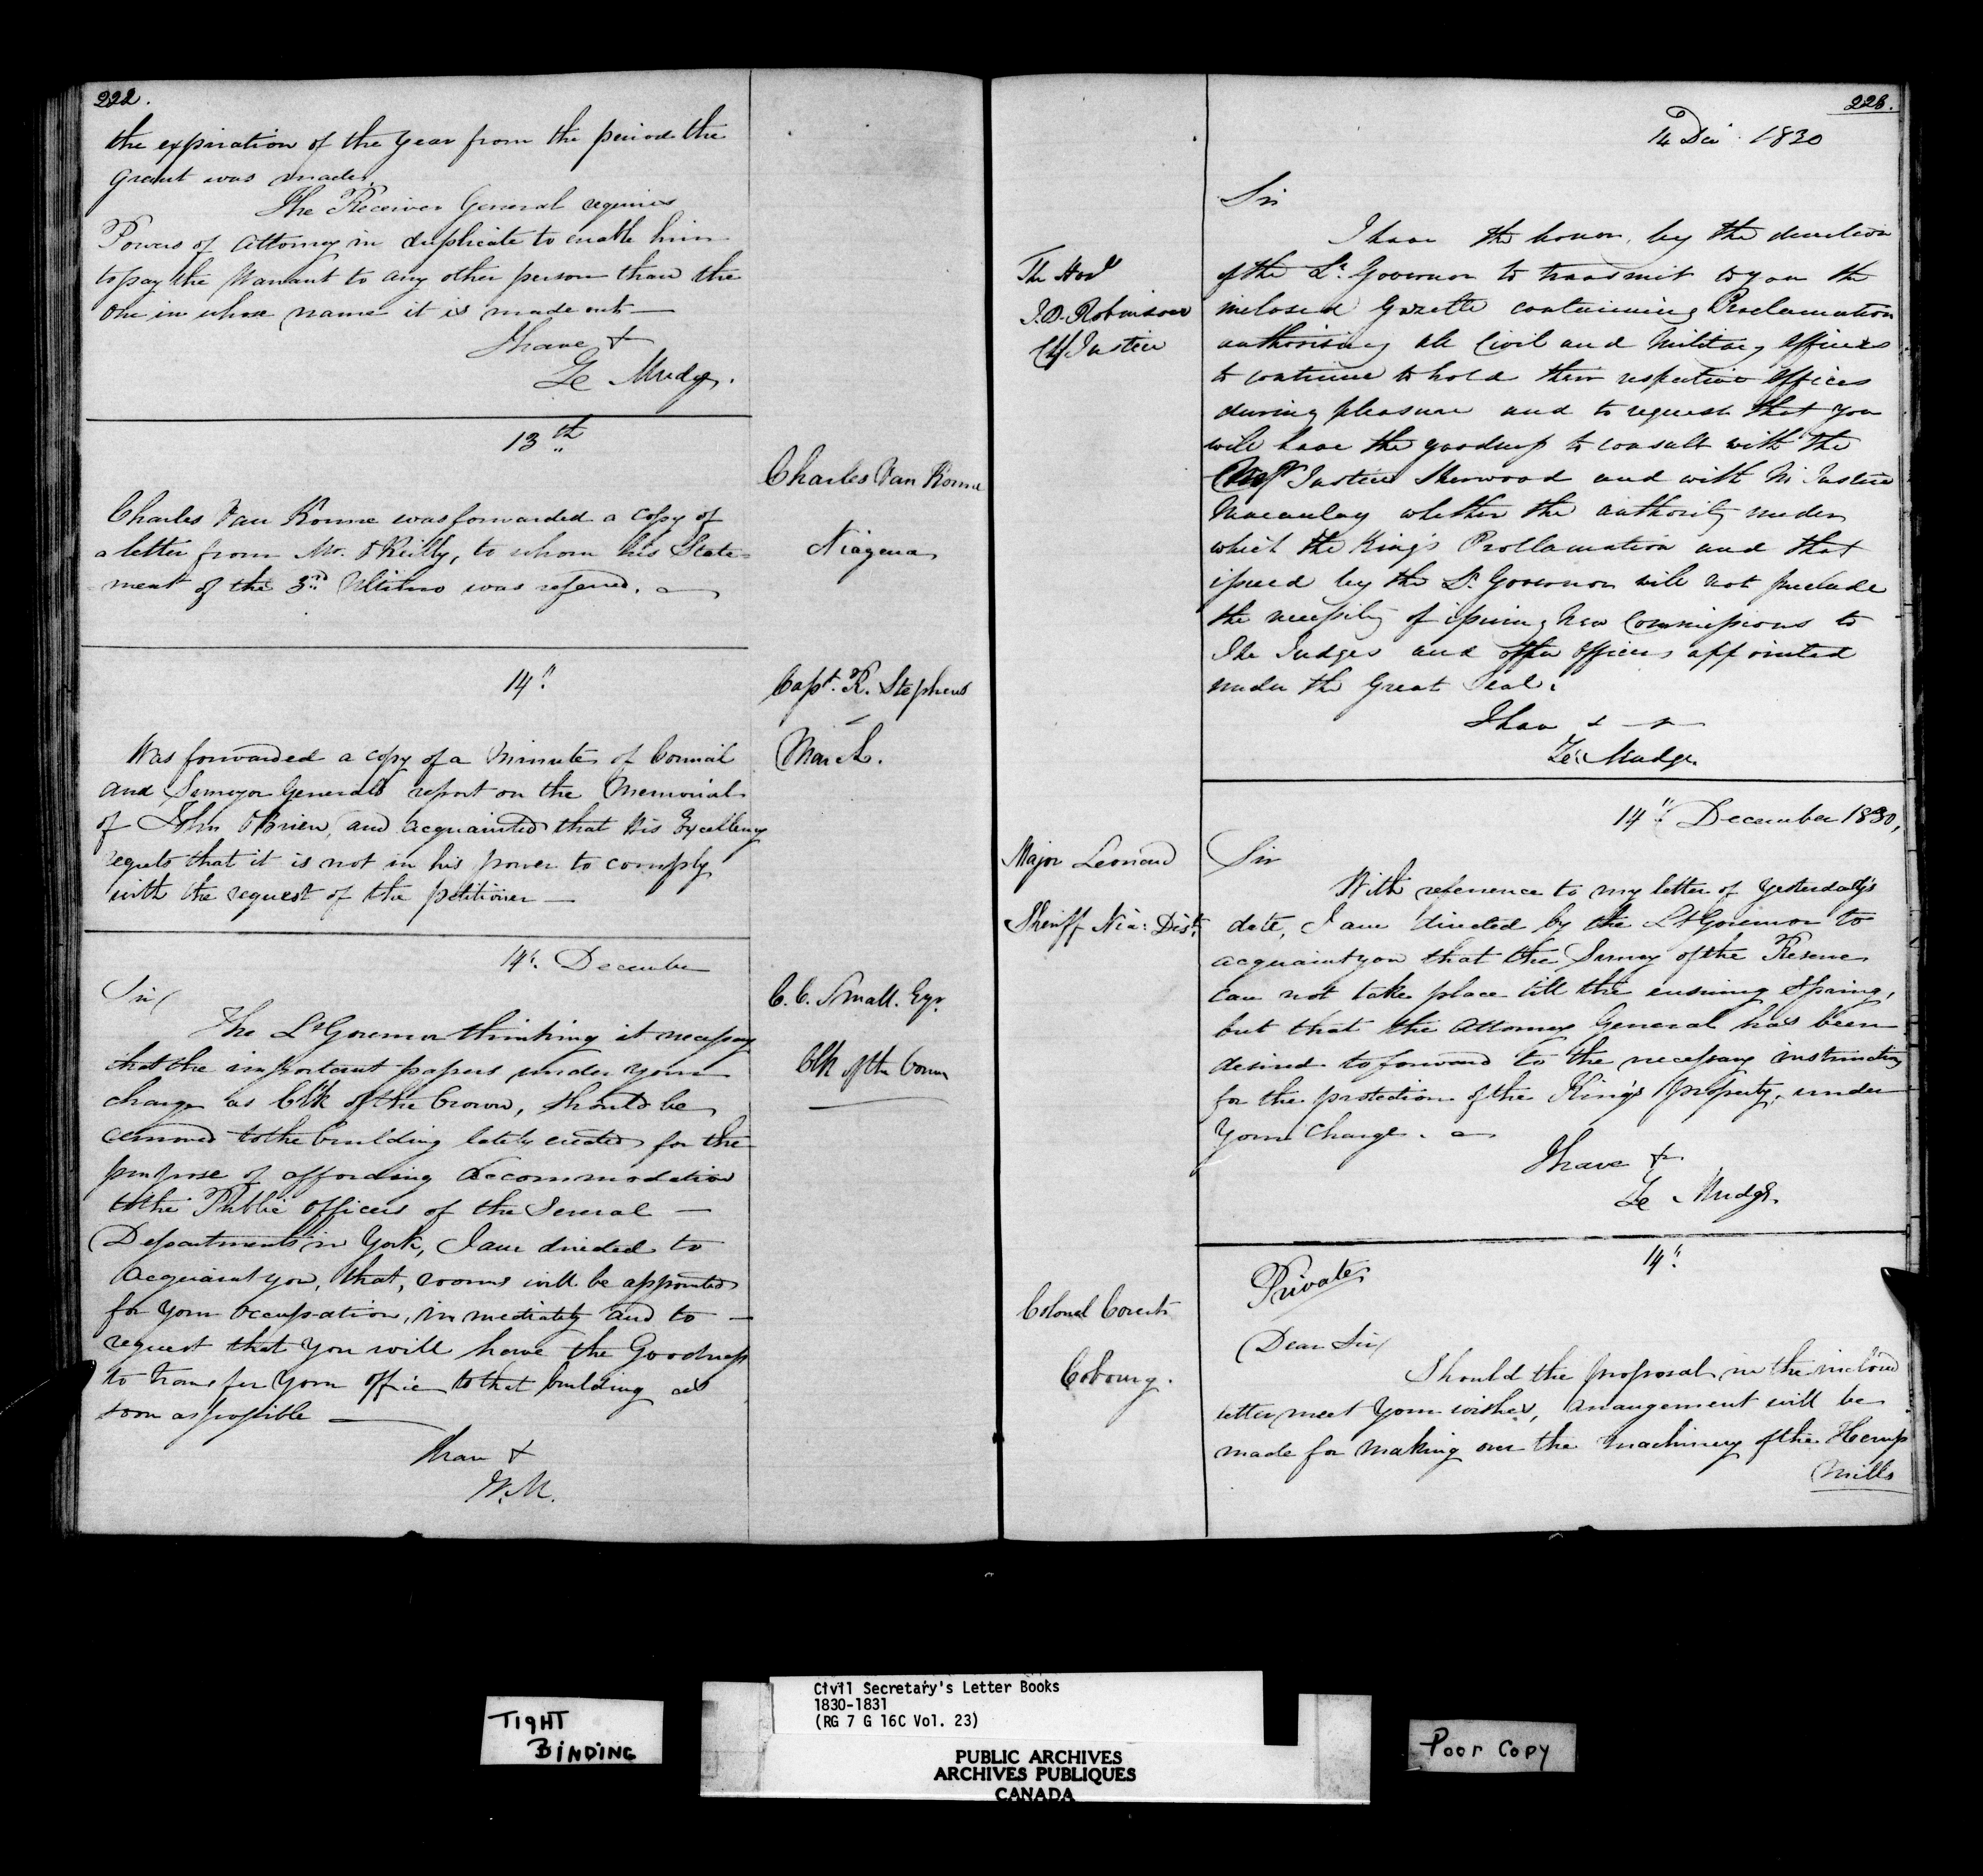 222.
the expiration of the Year from the period the
Grant was made.
The Receiver General requires
Powers of Attorney in duplicate to enable him
to pay the Warrant to any other person than the
one in whose name it is made out —
I have &
Ze Mudge.
13th
Charles Van Konne
Niagena
Charles Van Konne was forwarded a copy of
a letter from Mr. O'Reilly, to whom his State-
ment of the 3rd Ultimo was referred.
14th
Capt. R. Stephens
March.
Was forwarded a copy of a Minute of Council
and Surveyor Generals report on the Memorial
of John O'Brien, and acquainted that His Excellency
regrets that it is not in his power to comply
with the request of the petitioner —
14th December
C. C. Small. Eqr.
Clk of the Crown
Sir/
The Lt Governor thinking it necessary
that the important papers under your
charge as Clk of the Crown, should be
removed to the building lately erected for the
purpose of affording accommodation
to the Public Officers of the Several —
Departments in York, I am directed to
acquaint you, that, rooms will be appointed
for your occupation, immediately and to —
request that you will have the Goodness
to transfer your office to that building as
soon as possible —
I have &
W. M.
223.
14 Decr 1830
The Honl
J. B. Robinson
Chf Justice
Sir
I have the honor, by the direction
of the Lt Governor to transmit to you the
inclosed Gazette containing Proclamation
authorising all Civil and Military Officers
to continue to hold their respective Offices
during pleasure and to request that you
will have the goodness to consult with the
Justice Sherwood and with Mr Justice
Macaulay whether the authority under
which the King's Proclamation and that
issued by the Lt Governor will not preclude
the necessity of issuing New Commissions to
The Judges and other Officers appointed
under the Great Seal.
I have &
Ze: Mudge
14th December 1830,
Major Leonard
Sheriff Nia: Dist.
Sir
With reference to my letter of Yesterday's
date, I am directed by the Lt Governor to
acquaint you that the Survey of the Reserve
can not take place till the ensuing Spring,
but that the Attorney General has been
desired to forward to the necessary instructions
for the protection of the King's property, under
your Charge.
I have &
Ze Mudge.
14th
Private
Colonel Covert
Cobourg.
Dear Sir/
Should the proposal in the inclosed
letter meet your wishes, arrangement will be
made for making over the machinery of the Hemp
Mills
TIGHT
BINDING
Civil Secretary's Letter Books
1830-1831
(RG 7 G 16C Vol. 23)
PUBLIC ARCHIVES
ARCHIVES PUBLIQUES
CANADA
Poor Copy